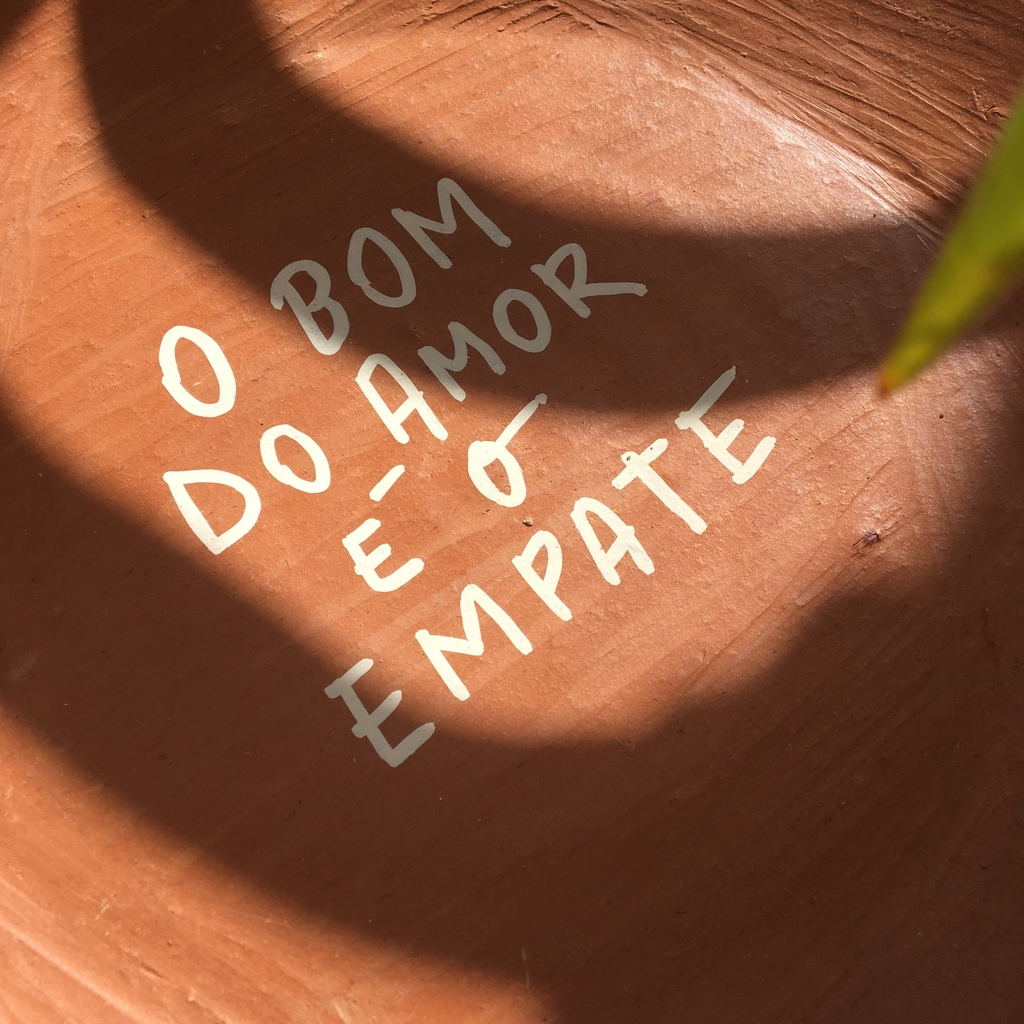 O BOM
DO AMOR
É O
EMPATE